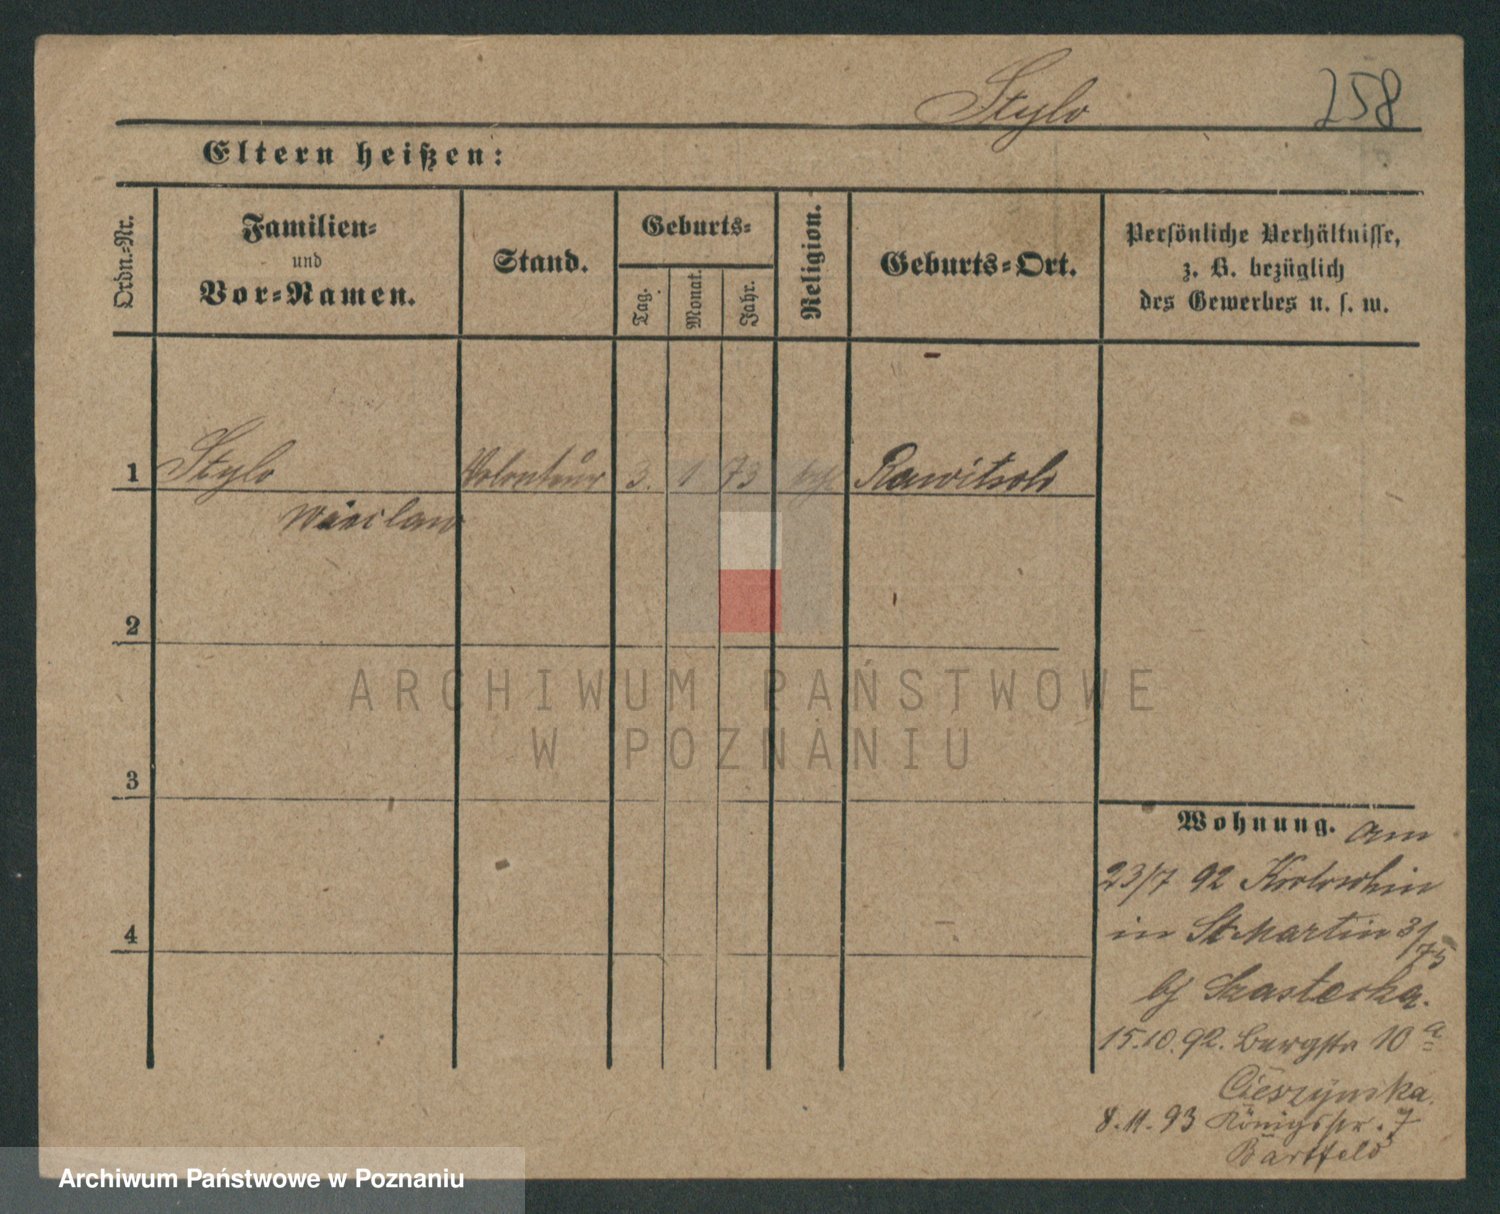 Stylo
258
Eltern heißen:
Ordn.-Nr.
Familien-
und
Vor-Namen.
Stand.
Geburts-
Tag.
Monat.
Jahr.
Religion.
Geburts-Ort.
Persönliche Verhältnisse,
z. B. bezüglich
des Gewerbes u. s. w.
1
Stylo
Volonteur
3. 1 73
Rawitsch
2
ARCHIWUM PAŃSTWOWE
W POZNANIU
3
Wohnung. am
23/7 92 Krotoschin
in St Martin
4
15.10.92. Bergstr 10 a
Cieszynska.
8.11.93 Königsstr. 7
Bartfeld
Archiwum Państwowe w Poznaniu